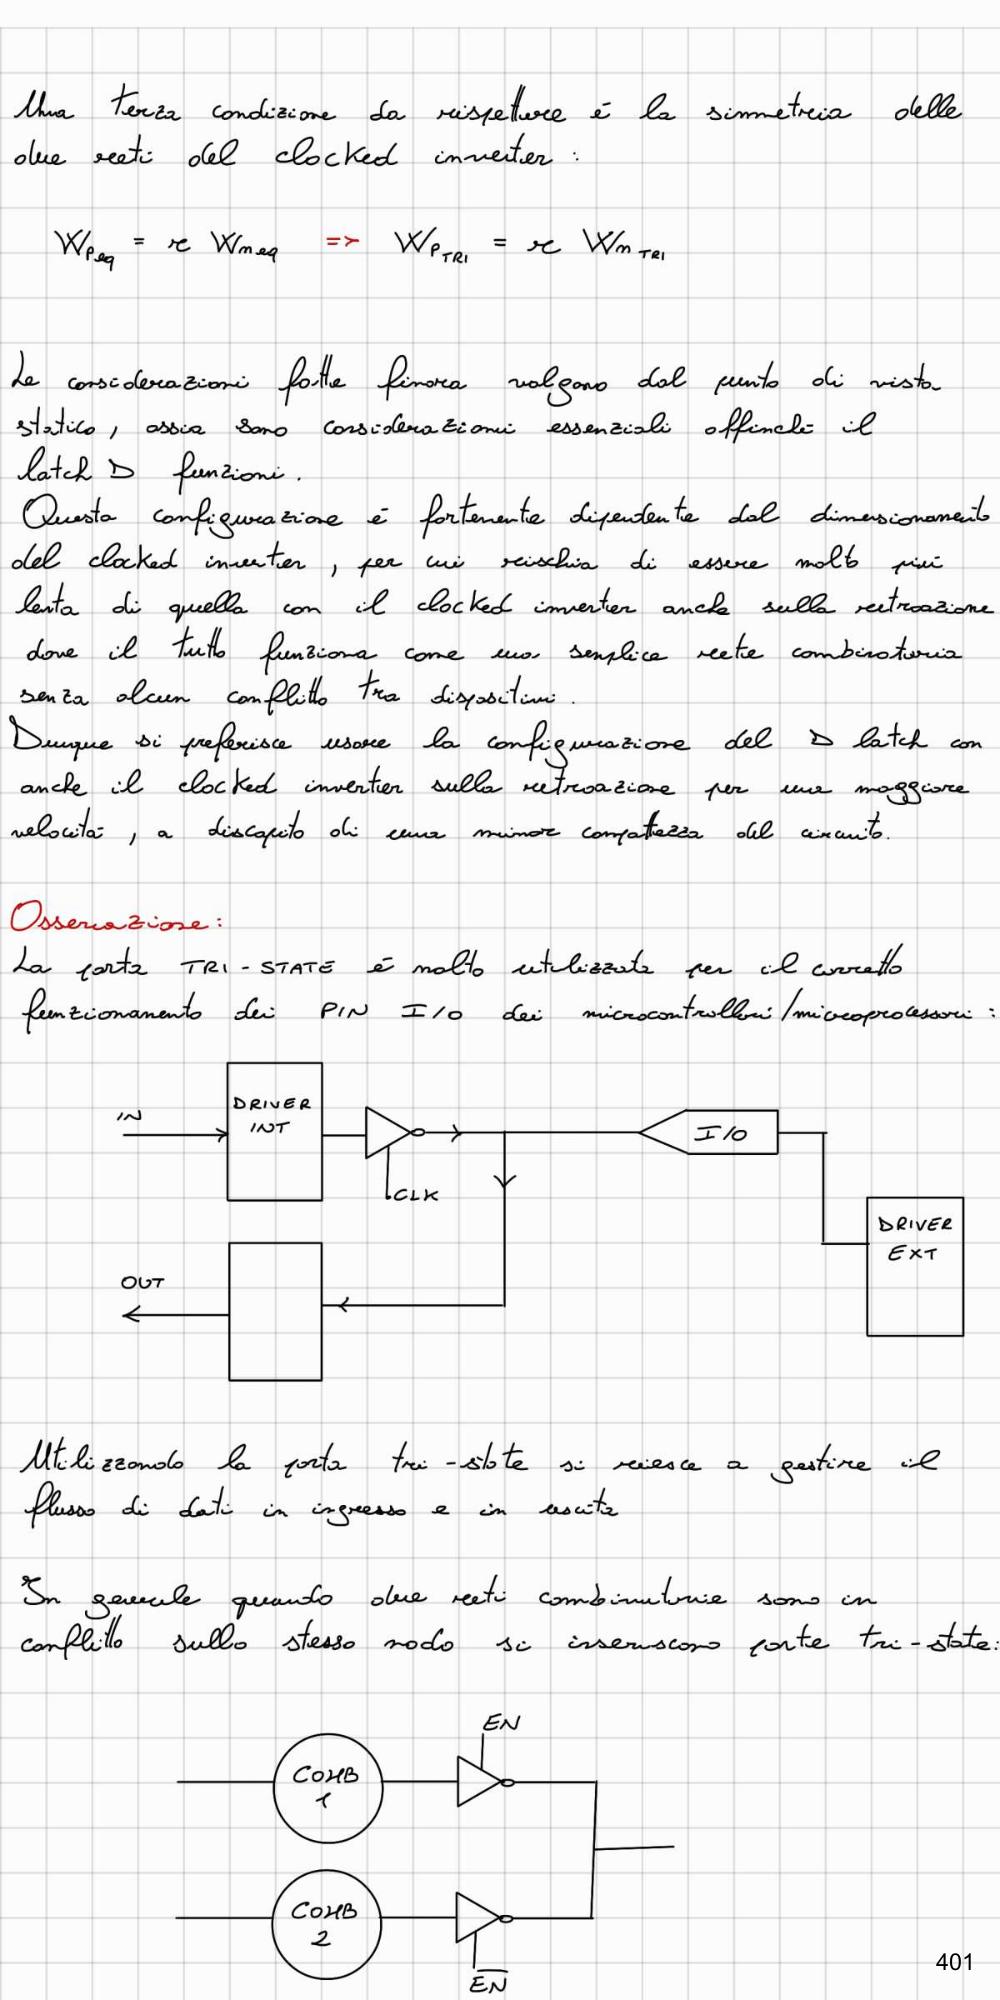 Una terza condizione da rispettare è la simmetria delle
due reti del clocked inverter :
Wpeq = r Wneq => WpTRI = r WnTRI
Le considerazioni fatte finora valgono dal punto di vista
statico, ossia sono considerazioni essenziali affinché il
latch D funzioni.
Questa configurazione è fortemente dipendente dal dimensionamento
del clocked inverter, per cui rischia di essere molto più
lenta di quella con il clocked inverter anche sulla retroazione
dove il tutto funziona come una semplice rete combinatoria
senza alcun conflitto tra dispositivi.
Dunque si preferisce usare la configurazione del D latch con
anche il clocked inverter sulla retroazione per una maggiore
velocità, a discapito di una minor compattezza del circuito.
Osservazione:
La porta TRI-STATE è molto utilizzata per il corretto
funzionamento dei PIN I/O dei microcontrollori/microprocessori :
IN
DRIVER
INT
CLK
I/O
DRIVER
EXT
OUT
Utilizzando la porta tri-state si riesce a gestire il
flusso di dati in ingresso e in uscita
In generale quando due reti combinatorie sono in
conflitto sullo stesso nodo si inseriscono porte tri-state:
EN
COMB
1
COMB
2
E̅N̅
401